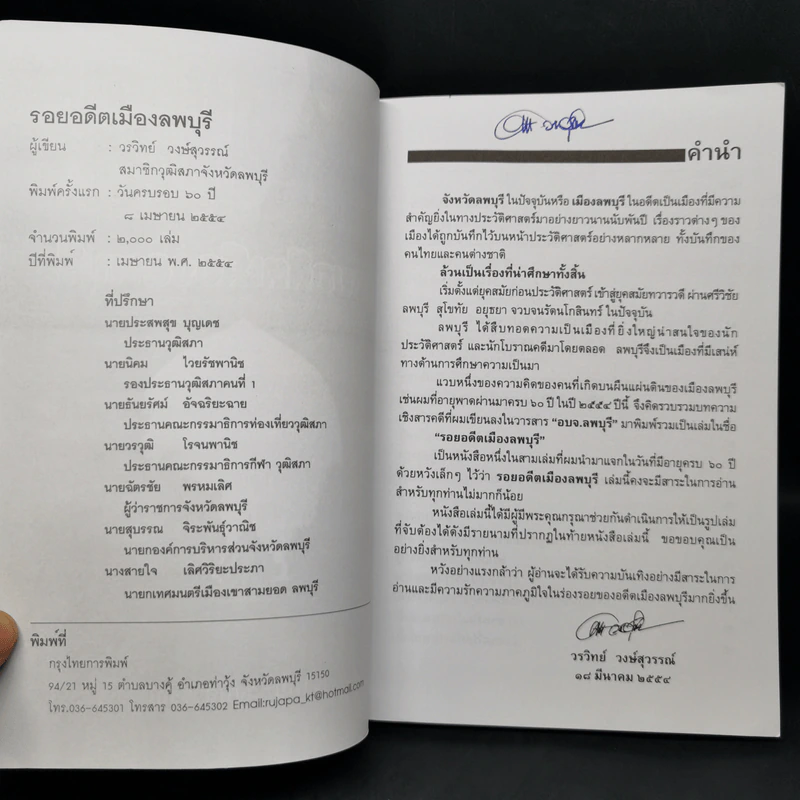 รอยอดีตเมืองลพบุรี
ผู้เขียน : วรวิทย์ วงษ์สุวรรณ์
สมาชิกวุฒิสภาจังหวัดลพบุรี
พิมพ์ครั้งแรก : วันครบรอบ ๖๐ ปี
๘ เมษายน ๒๕๕๔
จำนวนพิมพ์ : ๒,๐๐๐ เล่ม
ปีที่พิมพ์ : เมษายน พ.ศ. ๒๕๕๔
ที่ปรึกษา
นายประสพสุข บุญเดช
ประธานวุฒิสภา
นายนิคม ไวยรัชพานิช
รองประธานวุฒิสภาคนที่ 1
นายธันยรัศม์ อัจฉริยะฉาย
ประธานคณะกรรมาธิการท่องเที่ยววุฒิสภา
นายวรวุฒิ โรจนพานิช
ประธานคณะกรรมาธิการกีฬา วุฒิสภา
นายฉัตรชัย พรหมเลิศ
ผู้ว่าราชการจังหวัดลพบุรี
นายสุบรรณ จิระพันธุ์วาณิช
นายกองค์การบริหารส่วนจังหวัดลพบุรี
นางสายใจ เลิศวิริยะประภา
นายกเทศมนตรีเมืองเขาสามยอด ลพบุรี
พิมพ์ที่
กรุงไทยการพิมพ์
94/21 หมู่ 15 ตำบลบางคู้ อำเภอท่าวุ้ง จังหวัดลพบุรี 15150
โทร.036-645301 โทรสาร 036-645302 Email:rujapa_kt@hotmail.com
คำนำ
จังหวัดลพบุรี ในปัจจุบันหรือ เมืองลพบุรี ในอดีตเป็นเมืองที่มีความ
สำคัญยิ่งในทางประวัติศาสตร์มาอย่างยาวนานนับพันปี เรื่องราวต่างๆ ของ
เมืองได้ถูกบันทึกไว้บนหน้าประวัติศาสตร์อย่างหลากหลาย ทั้งบันทึกของ
คนไทยและคนต่างชาติ
ล้วนเป็นเรื่องที่น่าศึกษาทั้งสิ้น
เริ่มตั้งแต่ยุคสมัยก่อนประวัติศาสตร์ เข้าสู่ยุคสมัยทวารวดี ผ่านศรีวิชัย
ลพบุรี สุโขทัย อยุธยา จวบจนรัตนโกสินทร์ ในปัจจุบัน
ลพบุรี ได้สืบทอดความเป็นเมืองที่ยิ่งใหญ่น่าสนใจของนัก
ประวัติศาสตร์ และนักโบราณคดีมาโดยตลอด ลพบุรีจึงเป็นเมืองที่มีเสน่ห์
ทางด้านการศึกษาความเป็นมา
แวบหนึ่งของความคิดของคนที่เกิดบนผืนแผ่นดินของเมืองลพบุรี
เช่นผมที่อายุพาดผ่านมาครบ ๖๐ ปี ในปี ๒๕๕๔ ปีนี้ จึงคิดรวบรวมบทความ
เชิงสารคดีที่ผมเขียนลงในวารสาร “อบจ.ลพบุรี” มาพิมพ์รวมเป็นเล่มในชื่อ
“รอยอดีตเมืองลพบุรี”
เป็นหนังสือหนึ่งในสามเล่มที่ผมนำมาแจกในวันที่มีอายุครบ ๖๐ ปี
ด้วยหวังเล็กๆ ไว้ว่า รอยอดีตเมืองลพบุรี เล่มนี้คงจะมีสาระในการอ่าน
สำหรับทุกท่านไม่มากก็น้อย
หนังสือเล่มนี้ได้มีผู้มีพระคุณกรุณาช่วยกันดำเนินการให้เป็นรูปเล่ม
ที่จับต้องได้ดังมีรายนามที่ปรากฏในท้ายหนังสือเล่มนี้ ขอขอบคุณเป็น
อย่างยิ่งสำหรับทุกท่าน
หวังอย่างแรงกล้าว่า ผู้อ่านจะได้รับความบันเทิงอย่างมีสาระในการ
อ่านและมีความรักความภาคภูมิใจในร่องรอยของอดีตเมืองลพบุรีมากยิ่งขึ้น
วรวิทย์ วงษ์สุวรรณ์
๑๘ มีนาคม ๒๕๕๔